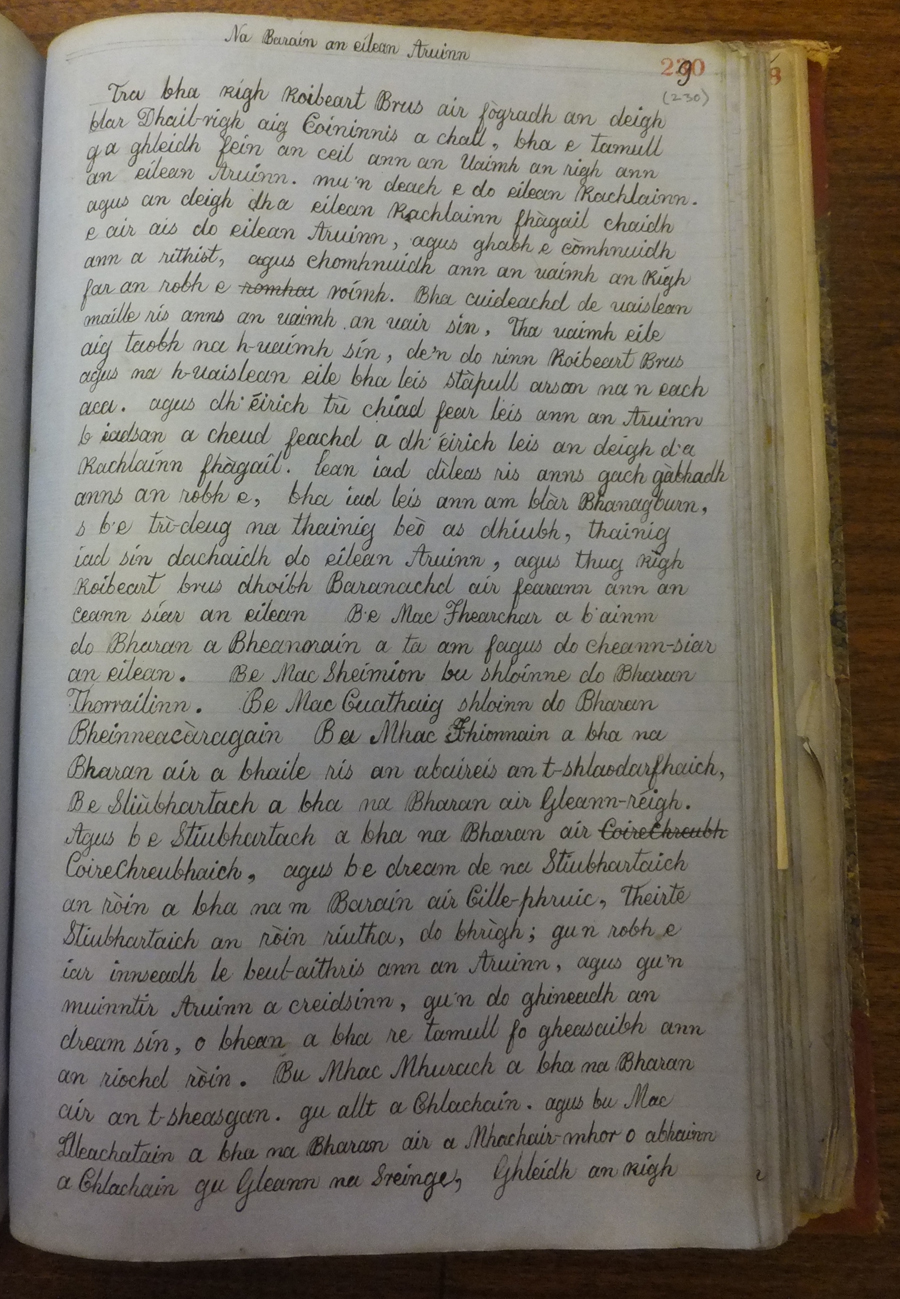 Na Barain an eilean Aruinn
229
(230)
Tra bha righ Roibeart Brus air fògradh an deigh
blar Dhail-righ aig Coininnis a chall, bha e tamull
ga ghleidh fein an ceil ann an Uaimh an righ ann
an eilean Aruinn. mu'n deach e do eilean Rachlainn.
agus an deigh dha eilean Rachlainn fhàgail chaidh
e air ais do eilean Aruinn, agus ghabh e còmhnuidh
ann a rithist, agus chomhnuidh ann an uaimh an Righ
far an robh e romhai roimh. Bha cuideachd de uaislean
maille ris anns an uaimh an uair sin, Tha uaimh eile
aig taobh na h-uaimh sin, de'n do rinn Roibeart Brus
agus na h-uaislean eile bha leis stàpull arson na n each
aca. agus dh'éirich trì chiad fear leis ann an Aruinn
b iadsan a cheud feachd a dh'éirich leis an deigh d'a
Rachlainn fhàgail. lean iad dileas ris anns gach gàbhadh
anns an robh e, bha iad leis ann am blàr Bhanagburn,
s b'e trì-deug na thainig beò as dhiubh, thainig
iad sin dachaidh do eilean Aruinn, agus thug righ
Roibeart brus dhoibh Baranachd air fearann ann an
ceann siar an eilean Be Mac Fhearchar a b'ainm
do Bharan a Bheanorain a ta am fagus do cheann-siar
an eilean. Be Mac Sheimion bu shloinne do Bharan
Thorrailinn. Be Mac Cuathaig shloinn do Bharan
Bheinneacàragain Be Mhac Fhionnain a bha na
Bharan air a bhaile ris an abaireis an t-shlaodarfhaich,
Be Stiùbhartach a bha na Bharan air Gleann-réigh.
Agus b e Stiubhartach a bha na Bharan air CoireChreubh
CoireChreubhaich, agus be dream de na Stiubhartaich
an ròin a bha na m Barain air Cille-phruic, Theirte
Stiubhartaich an ròin riutha, do bhrìgh; gu n robh e
iar innseadh le beul-aithris ann an Aruinn, agus gu'n
muinntir Aruinn a creidsinn, gu'n do ghineadh an
dream sin, o bhean a bha re tamull fo gheasaibh ann
an riochd ròin. Bu Mhac Mhurach a bha na Bharan
air an t-sheasgan. gu allt a Chlachain. agus bu Mac
Dleachatain a bha na Bharan air a Mhachair-mhor o abhainn
a Chlachain gu Gleann na Sreinge, Ghleidh an righ